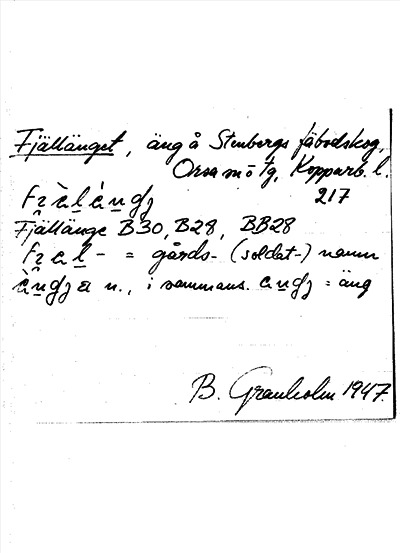 Fjällänget, äng å Stenbergs fäbodskog,
Orsa m o tg, Kopparb. l.
217
Fjällänge B30, B28, BB28
- = gårds- (soldat-) namn
n., i sammans. = äng
B. Granholm 1947.